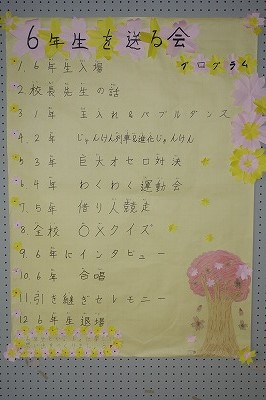 6年生を送る会
プログラム
1.6年生入場
2.校長先生の話
3 1年 玉入れ&バブルダンス
4 2年 じゃんけん列車&進化じゃんけん
5 3年 巨大オセロ対決
6 4年 わくわく運動会
7.5年 借り人競走
8 全校 〇×クイズ
9 6年にインタビュー
10.6年 合唱
11.引き継ぎセレモニー
12 6年生退場